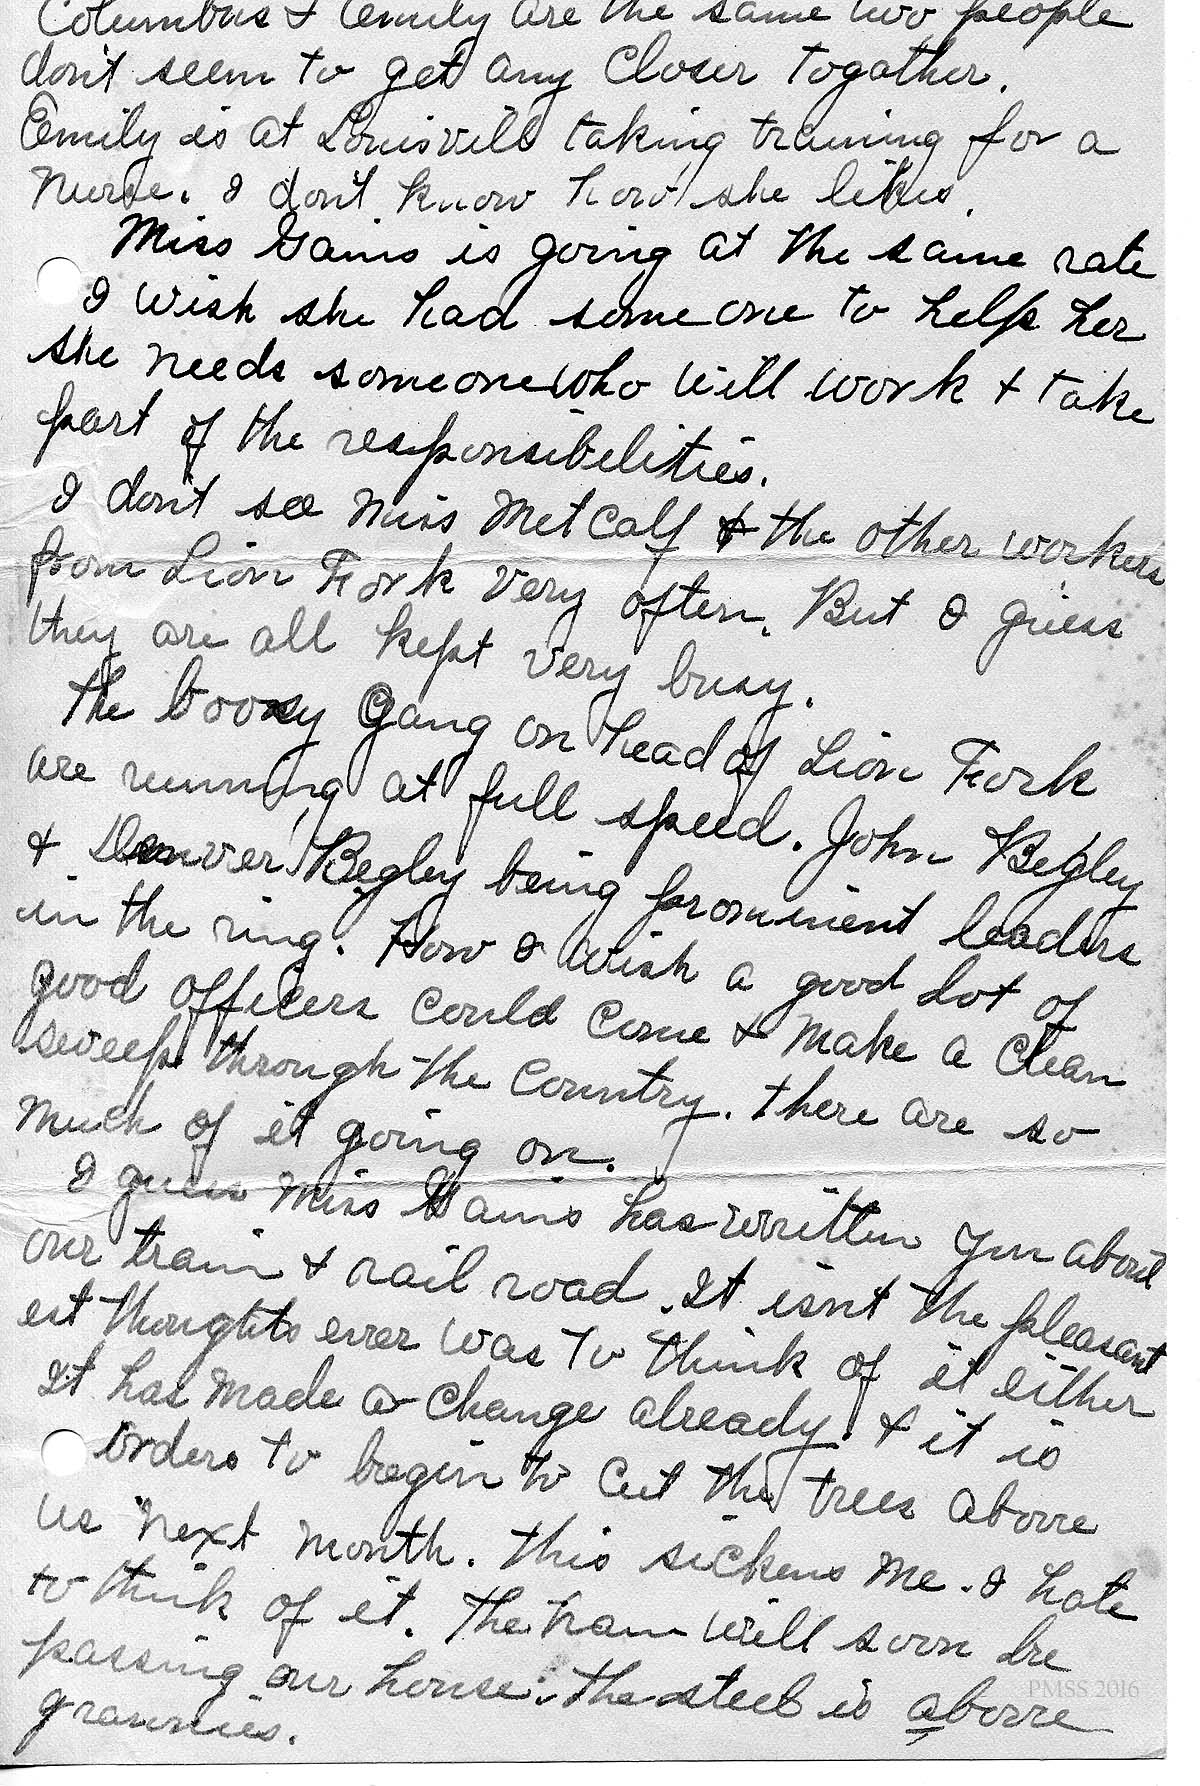 Columbus & Emily are the same two people
don't seem to get any closer togather.
Emily is at Louisvill taking training for a
Nurse. I don't know how she likes.
Miss Gains is going at the same rate
I wish she had some one to help her
she needs someone who will work & take
part of the responsibelities.
I don't see Miss Metcalf & the other workers
from Lion Fork very often. But I guess
they are all kept very busy.
The boozy Gang on head of Lion Fork
are running at full speed. John Begley
& Denver Begley being prominent leaders
in the ring. How I wish a good lot of
good officers could come & make a clean
sweep through the country. There are so
much of it going on.
I guess Miss Gains has written you about
our train & rail road. It isn't the pleasant
est thoughts ever was to think of it either
It has made a change already. & it is
orders to begin to cut the trees above
us next month. This sickens me. I hate
to think of it. The train will soon be
passing our house. The steel is above
grannies.
PMSS 2016